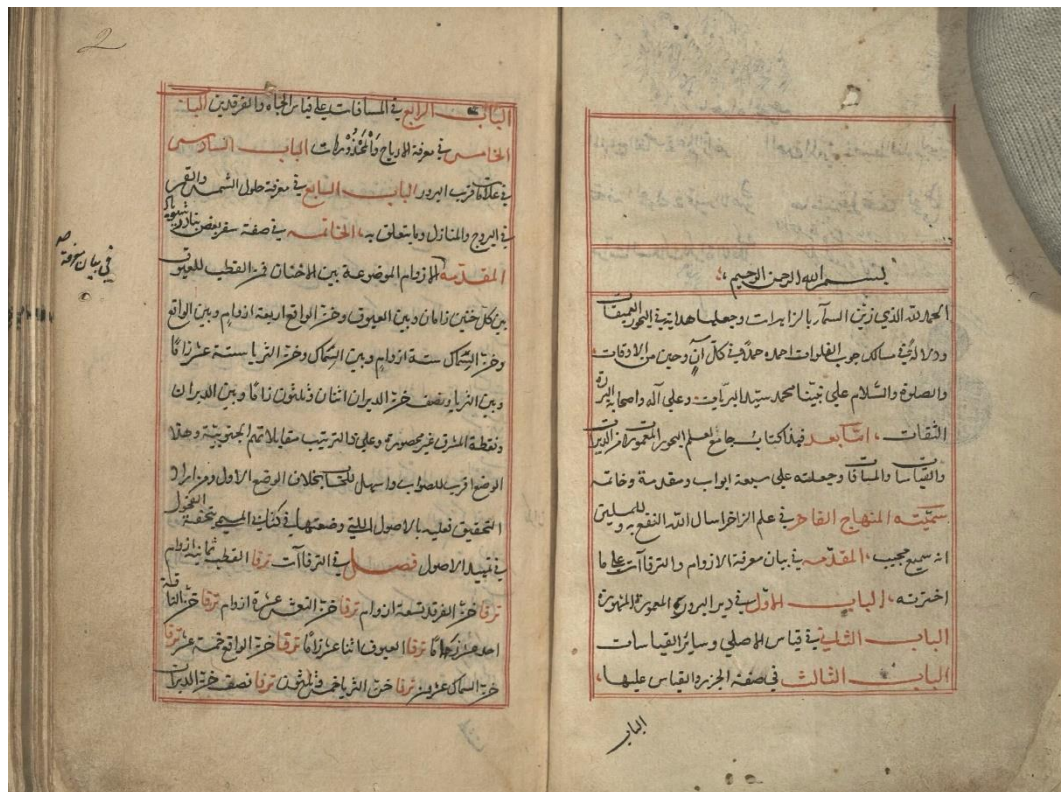 بسم الله الرحمن الرحيم
الحمد لله الذي زين السمآء بالزاهرات وجعلها هداية في البحور العميقات
ودلالة في مسالك جوب الفلوات احمده حمدا في كل آن وحين من الاوقات
والصلوة والسلام على نبينا محمد سيد البريات وعلى آله واصحابه البررة
الثقات، امّا بعد فهذا كتاب جامع لعلم البحور المعمورة من الديرات
والقياسات والمسافات وجعلته على سبعة ابواب ومقدمة وخاتمه
سمّيته المنهاج الفاخر في علم الزاخر اسال الله النفع به وللمسلمين
انه سميع مجيب، المقدّمه في بيان معرفة الازوام والترفاآت على ما
اخترته، الباب الاوّل في دير البرور المعمورة المشهورة
الباب الثاني في قياس الاصلي وساير القياسات
الباب الثالث في صفة الجزر والقياس عليها،
الباب
2
الباب الرابع في المسافات على قياس الجاه والفرقدين الباب
الخامس في معرفة الارياح والمحذورات الباب السادس
في علامات قرب البرور الباب السابع في معرفة حلول الشمس والقمر
في البروج والمنازل وما يتعلق به، الخاتمه في صفة سفر بعض بنادر
المقدّمه الازوام الموضوعة بين الاخنان فمن القطب للعيوق
بين كل خنين زامان وبين العيوق وخن الواقع اربعة ازوام وبين الواقع
وخن السماك ستة ازوام وبين السماك وخن الثريا ستة عشر زامًا
وبين الثريا ونصف خن الدبران اثنان وثلثون زامًا وبين الدبران
ونقطة المشرق غير محصورة وعلى ذا الترتيب مقابلاتهم الجنوبية وهذا
الوضع اقرب للصواب واسهل للحساب بخلاف الوضع الاول ومن اراد
التحقيق فعليه بالاصول اللتي وضعتها في كتاب المسمى بتحفة الفحول
في تمهيد الاصول فصل في الترفاآت ترفا القطب ثمانية ازوام
ترفا خن الفرقد تسعة ازوام ترفا خن النعش عشرة ازوام ترفا خن الناقة
احد عشر زامًا ترفا العيوق اثنا عشر زامًا ترفا خن الواقع خمسة عشر ترفا
خن السماك عشرين ترفا خن الثريا خمس وثلثون ترفا نصف خن الدبران
في بيان معرفة